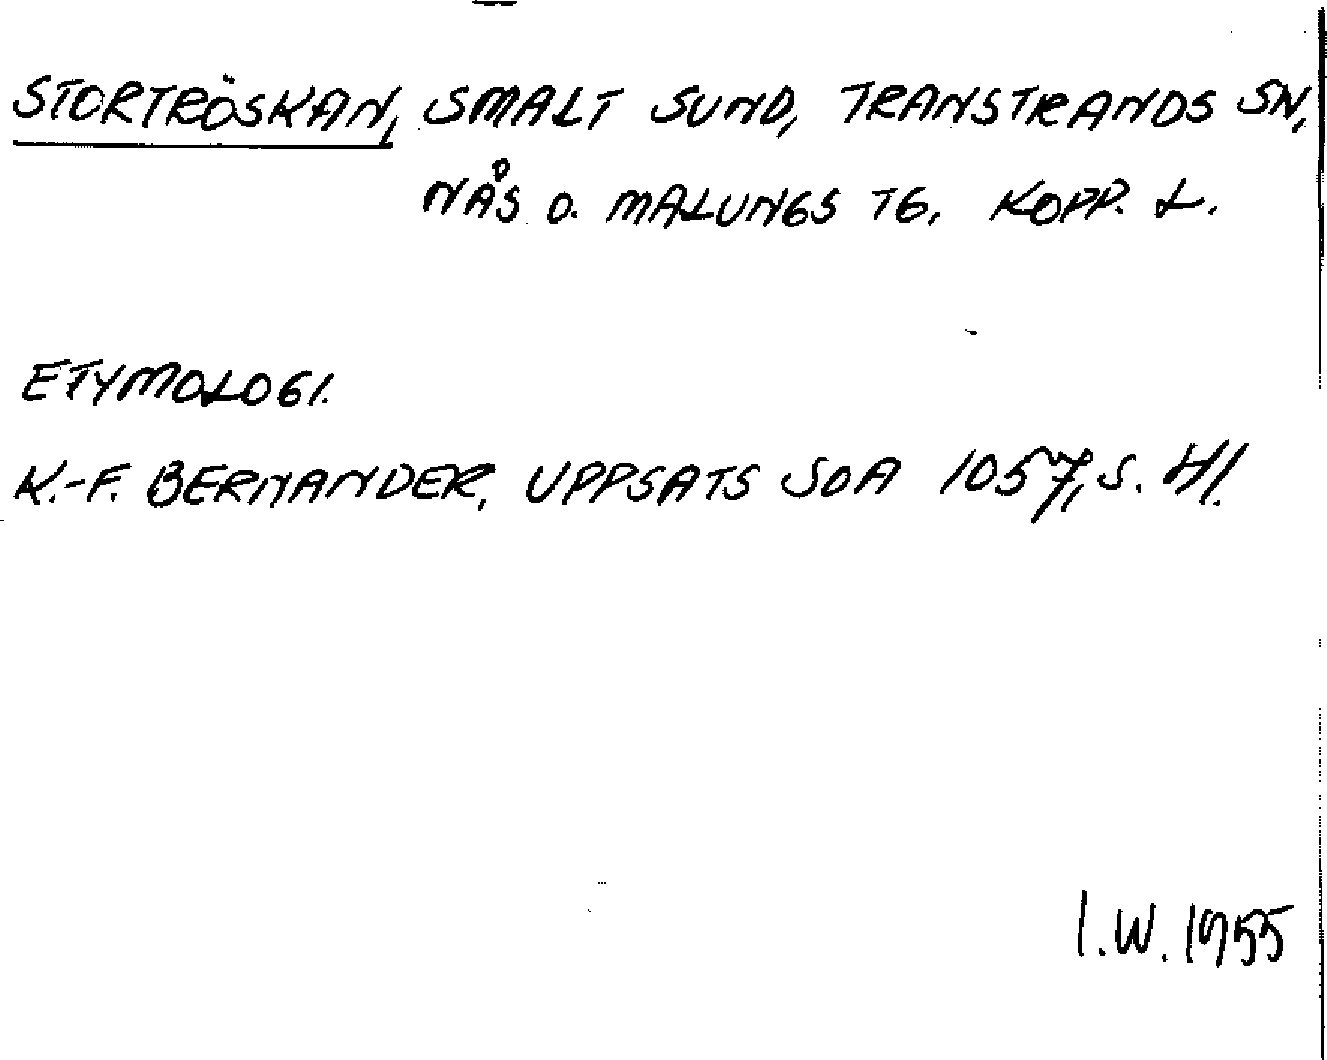 STORTRÖSKAN, SMALT SUND, TRANSTRANDS SN,
NÅS O. MALUNGS TG, KOPP. L.
ETYMOLOGI.
K.-F. BERNANDER, UPPSATS SOA 1057, S. 41.
I.W. 1955